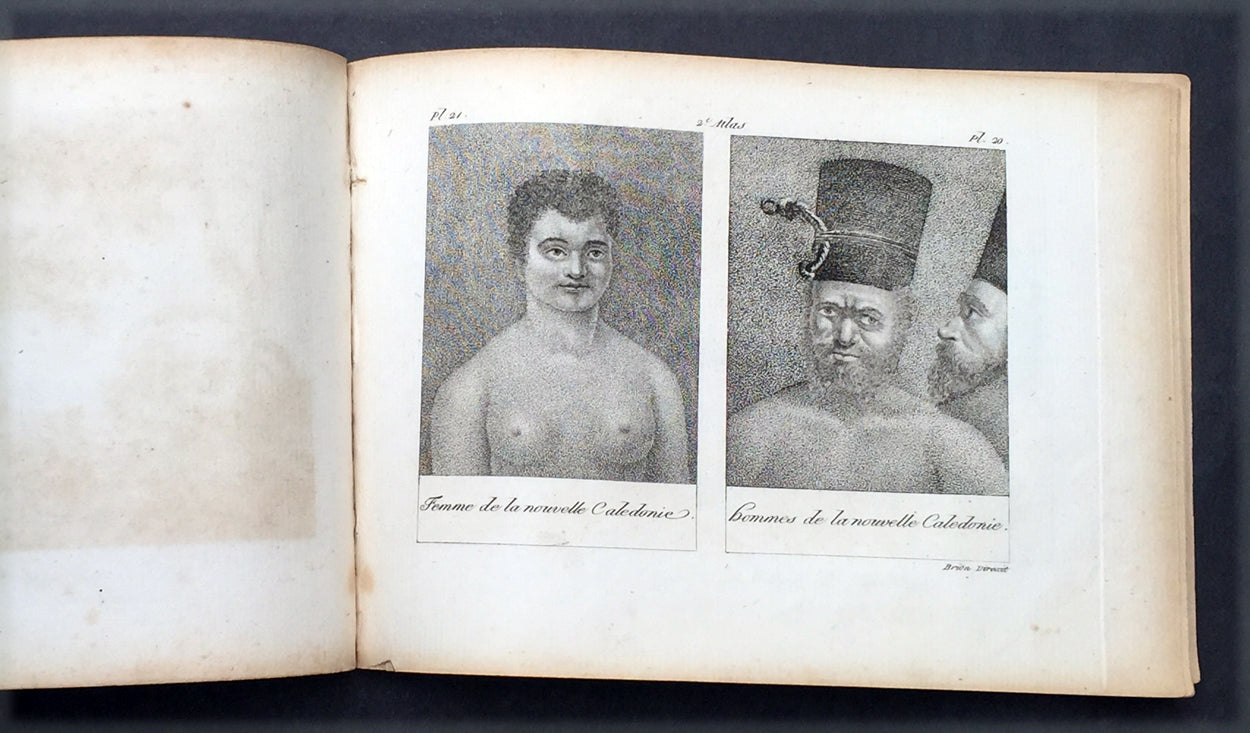 pl 21.
2e Atlas
Pl. 20.
Femme de la nouvelle Caledonie.
hommes de la nouvelle Caledonie.
Brion Direxit